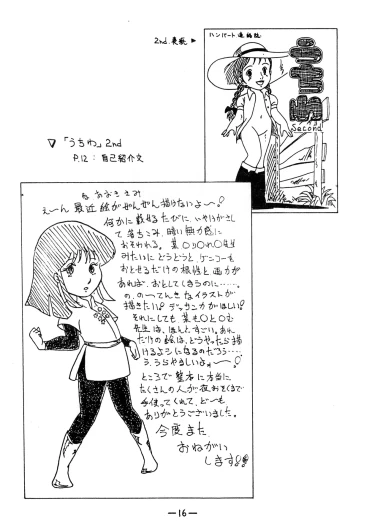 2nd.表紙 ▶
ハンバート連絡誌
うちわ
Second
▽「うちわ」2nd
P.12：自己紹介文
るあおききみ
え〜ん 最近絵がぜんぜん描けないよ〜!
何かに載せるたびに、いやけがさし
て落ちこみ、暗い無力感に
おそわれる。某○り○れ○先生
みたいにどうどうと、ゲンコーを
おとせるだけの根性と画力が
あれば、おとしてしまうのに……。
の、の〜てんきなイラストが
描きたい! デッサン力がほしい!
それにしても、某も○と○む
先生は、ほんとすごい。あれ
だけの絵は、どうやったら描
けるよーになるのだろう……
う、うらやましいよォ〜〜!
ところで整本に本当に
たくさんの人が夜おそくまで
手伝ってくれて、ど〜も
ありがとうございました。
今度また
おねがい
します!!
—16—